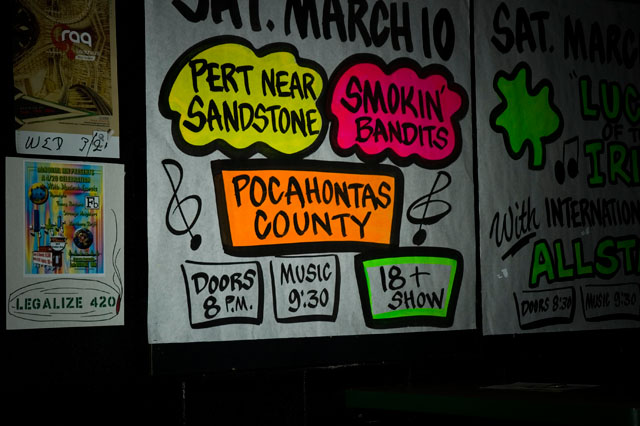 raq
WED 3/2
& 4/20 CELEBRATION
LEGALIZE 420
SAT. MARCH 10
PERT NEAR
SANDSTONE
SMOKIN'
BANDITS
POCAHONTAS
COUNTY
DOORS
8 P.M.
MUSIC
9:30
18+
SHOW
SAT. MARC
"LUC
OF
IRI
With INTERNATION
ALLSTA
DOORS 8:30
MUSIC 9:30